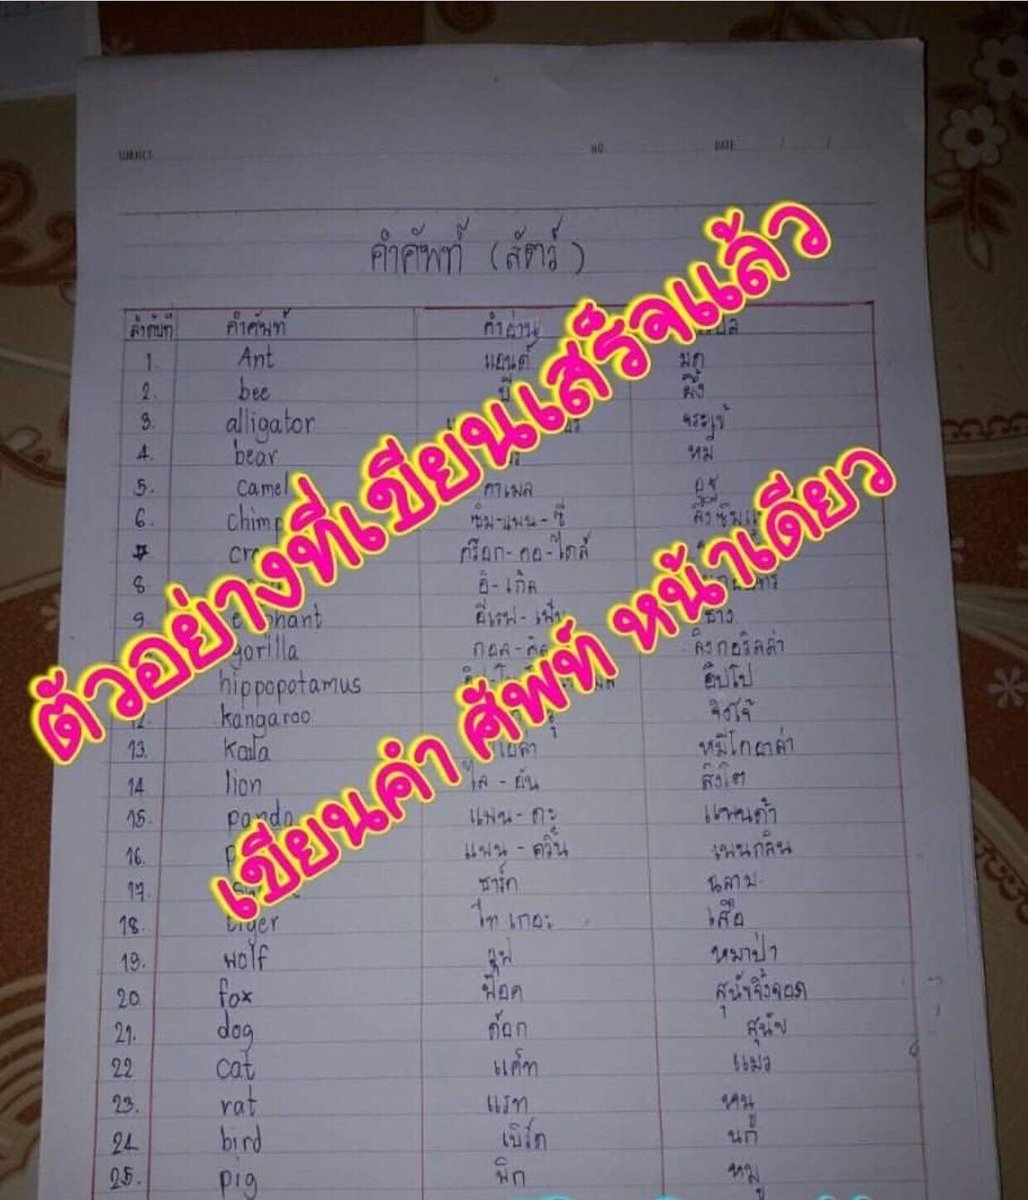 SUBJECT NO. DATE / /
คำศัพท์ (สัตว์)
ลำดับที่ คำศัพท์ คำอ่าน
1. Ant แอนด์ มด
2. bee บี ผึ้ง
3. alligator จระเข้
4. bear หมี
5. Camel คาเมล อูฐ
6. ซิม-แพน-ซี
7 คร๊อก-คอ-ไดล์
8 อิ-เกิล
9. ช้าง
gorilla ลิงกอริลล่า
hippopotamus ฮิปโป
12. kangaroo จิงโจ้
13. koala หมีโคอาล่า
14 lion ไล-อัน สิงโต
15. panda แพน-ดะ แพนด้า
16. แพน-ควิ้น เพนกวิน
17 ชาร์ก ฉลาม
18. tiger ไทเกอะ เสือ
19. wolf วูฟ หมาป่า
20. fox ฟ็อค สุนัขจิ้งจอก
21. dog ด้อก สุนัข
22 cat แค็ท แมว
23. rat แรท หนู
24 bird เบิร์ด นก
25. pig พิก หมู
ตัวอย่างที่เขียนเสร็จแล้ว
เขียนคำ ศัพท์ หน้าเดียว